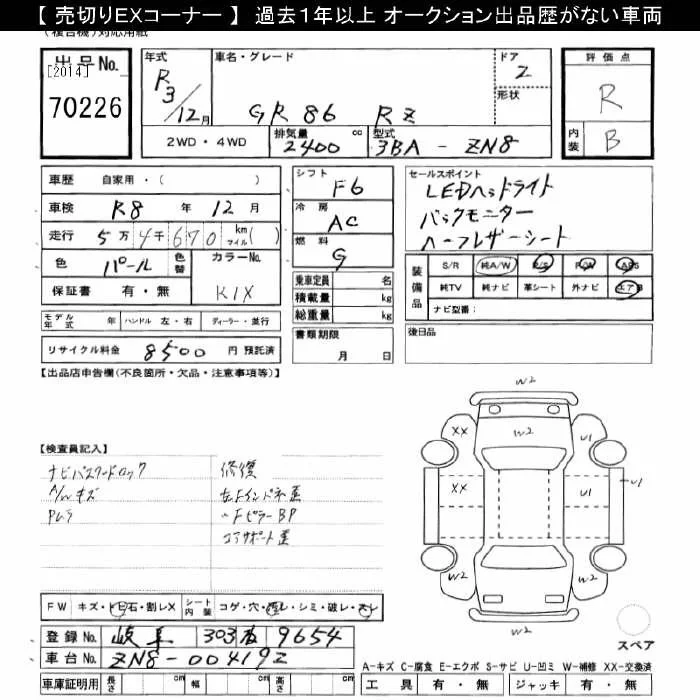 【 売切りEXコーナー 】 過去1年以上 オークション出品歴がない車両
(複合機)対応用紙
出品No. [2014] 70226
年式 R3/12月
車名・グレード GR86 RZ
ドア 2
形状
2WD・4WD
排気量 2400 cc
型式 3BA-ZN8
評価点 R
内装 B
車歴 自家用・( )
車検 R8年12月
走行 5万4千670 km マイル( )
色 パール 色替
カラーNo. K1X
保証書 有・無
シフト F6
冷房 AC
燃料 G
乗車定員 名
積載量 kg
総重量 kg
書類期限 月 日
セールスポイント
LEDヘッドライト
バックモニター
ハーフレザーシート
装備品 S/R 純A/W P/S P/W ABS
純TV 純ナビ 革シート 外ナビ エアB
ナビ型番:
後日品
モデル年式 年 ハンドル 左・右 ディーラー・並行
リサイクル料金 8500 円 預託済
【出品店申告欄(不良箇所・欠品・注意事項等)】
【検査員記入】
ナビパスワードロック
A/Wキズ
修復
左Fインドネ歪
〃FピラーBP
コアサポート歪
W2
XX
W2
U1
XX
U1
U1
W2
W2
W2
スペア
FW キズ・トビ石・割レX
シート内装 コゲ・穴・スレ・シミ・破レ・
登録No. 岐阜 303 9654
車台No. ZN8-004192
車庫証明用 長さ cm 幅 cm 高さ cm
A-キズ C-腐食 E-エクボ S-サビ U-凹ミ W-補修 XX-交換済
工具 有・無 ジャッキ 有・無